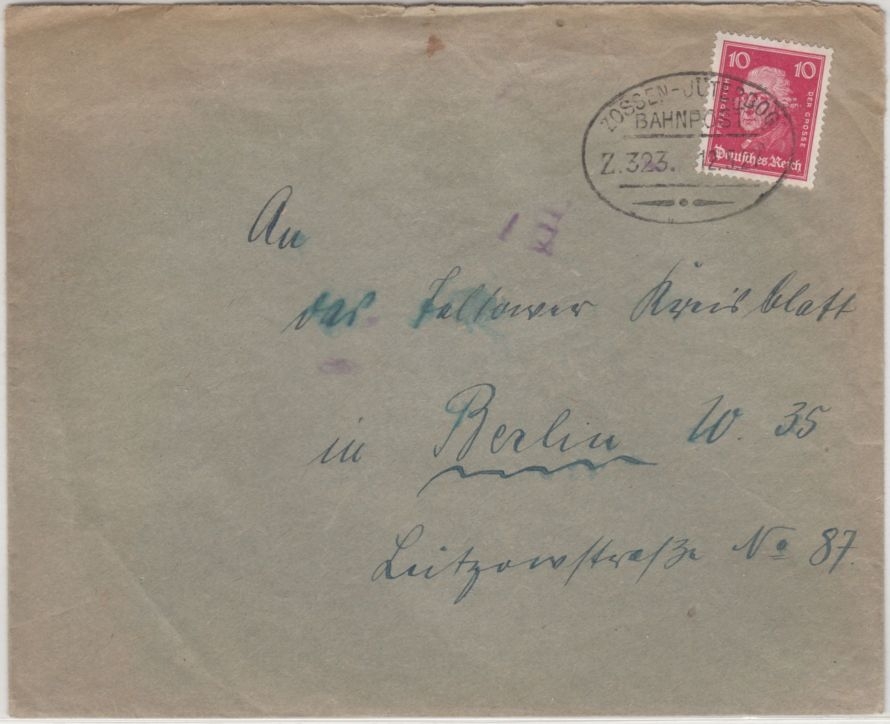 10 10
FRIEDRICH DER GROSSE
Deutsches Reich
ZOSSEN-JÜTERBOG
BAHNPOST
Z.323. 12.
An
das Teltower Kreisblatt
in Berlin W. 35
Lützowstraße No 87.